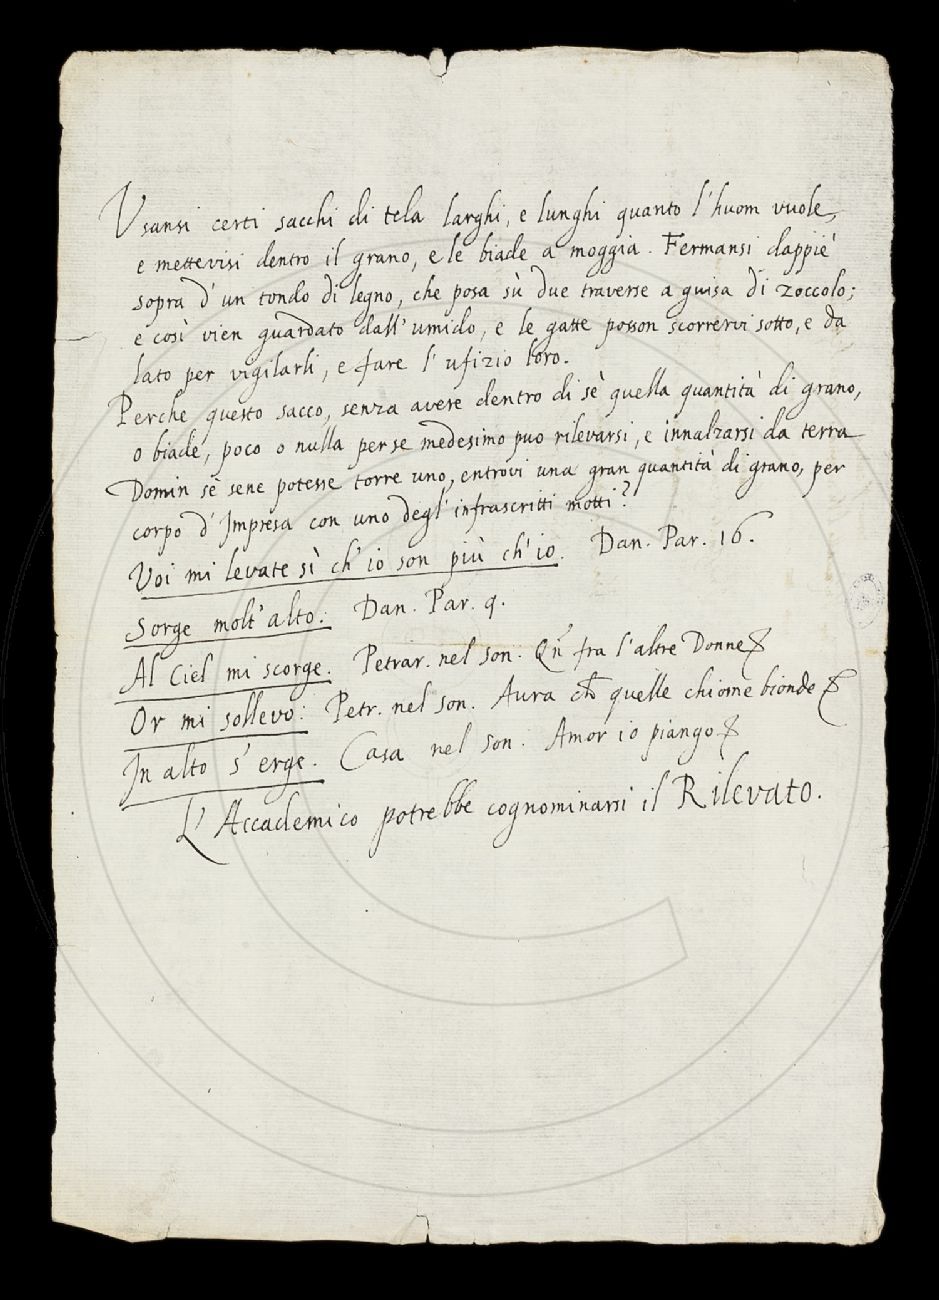 Usansi certi sacchi di tela larghi, e lunghi quanto l'huom vuole,
e mettevisi dentro il grano, e le biade a moggia. Fermansi dappiè
sopra d'un tondo di legno, che posa sù due traverse a guisa di zoccolo;
e così vien guardato dall'umido, e le gatte posson scorrervi sotto, e da
lato per vigilarli, e fare l'ufizio loro.
Perche questo sacco, senza avere dentro di sè quella quantità di grano,
o biade, poco o nulla per se medesimo puo rilevarsi, e innalzarsi da terra
Domin sè sene potesse torre uno, entrovi una gran quantità di grano, per
corpo d'Impresa con uno degl'infrascritti motti?
Voi mi levate sì ch'io son più ch'io. Dan. Par. 16.
Sorge molt'alto: Dan. Par. 9.
Al Ciel mi scorge. Petrar. nel son. Qñ fra l'altre Donne
Or mi sollevo: Petr. nel son. Aura ch̃ quelle chiome bionde
In alto s'erge. Casa nel son. Amor io piango
L'Accademico potrebbe cognominarsi il Rilevato.